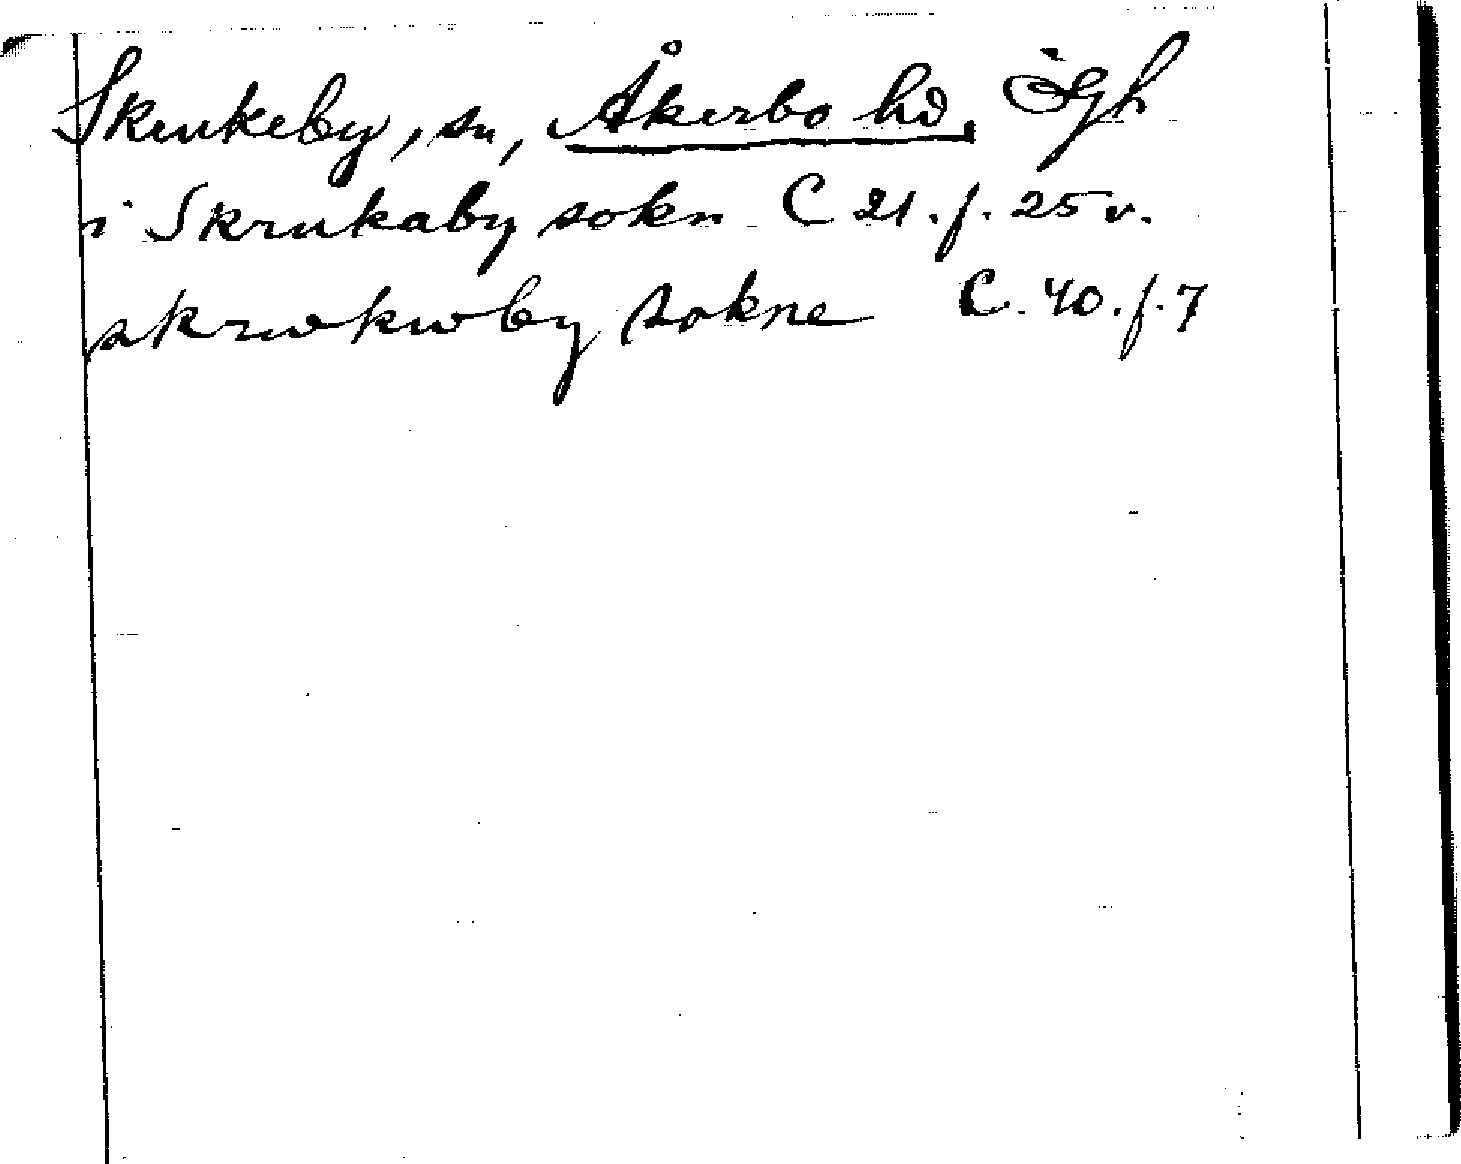 Skrukeby, sn, Åkerbo hd. Ögl
i Skrukaby sokn C 21. f. 25 v.
skrwkwby sokne C. 40. f. 7